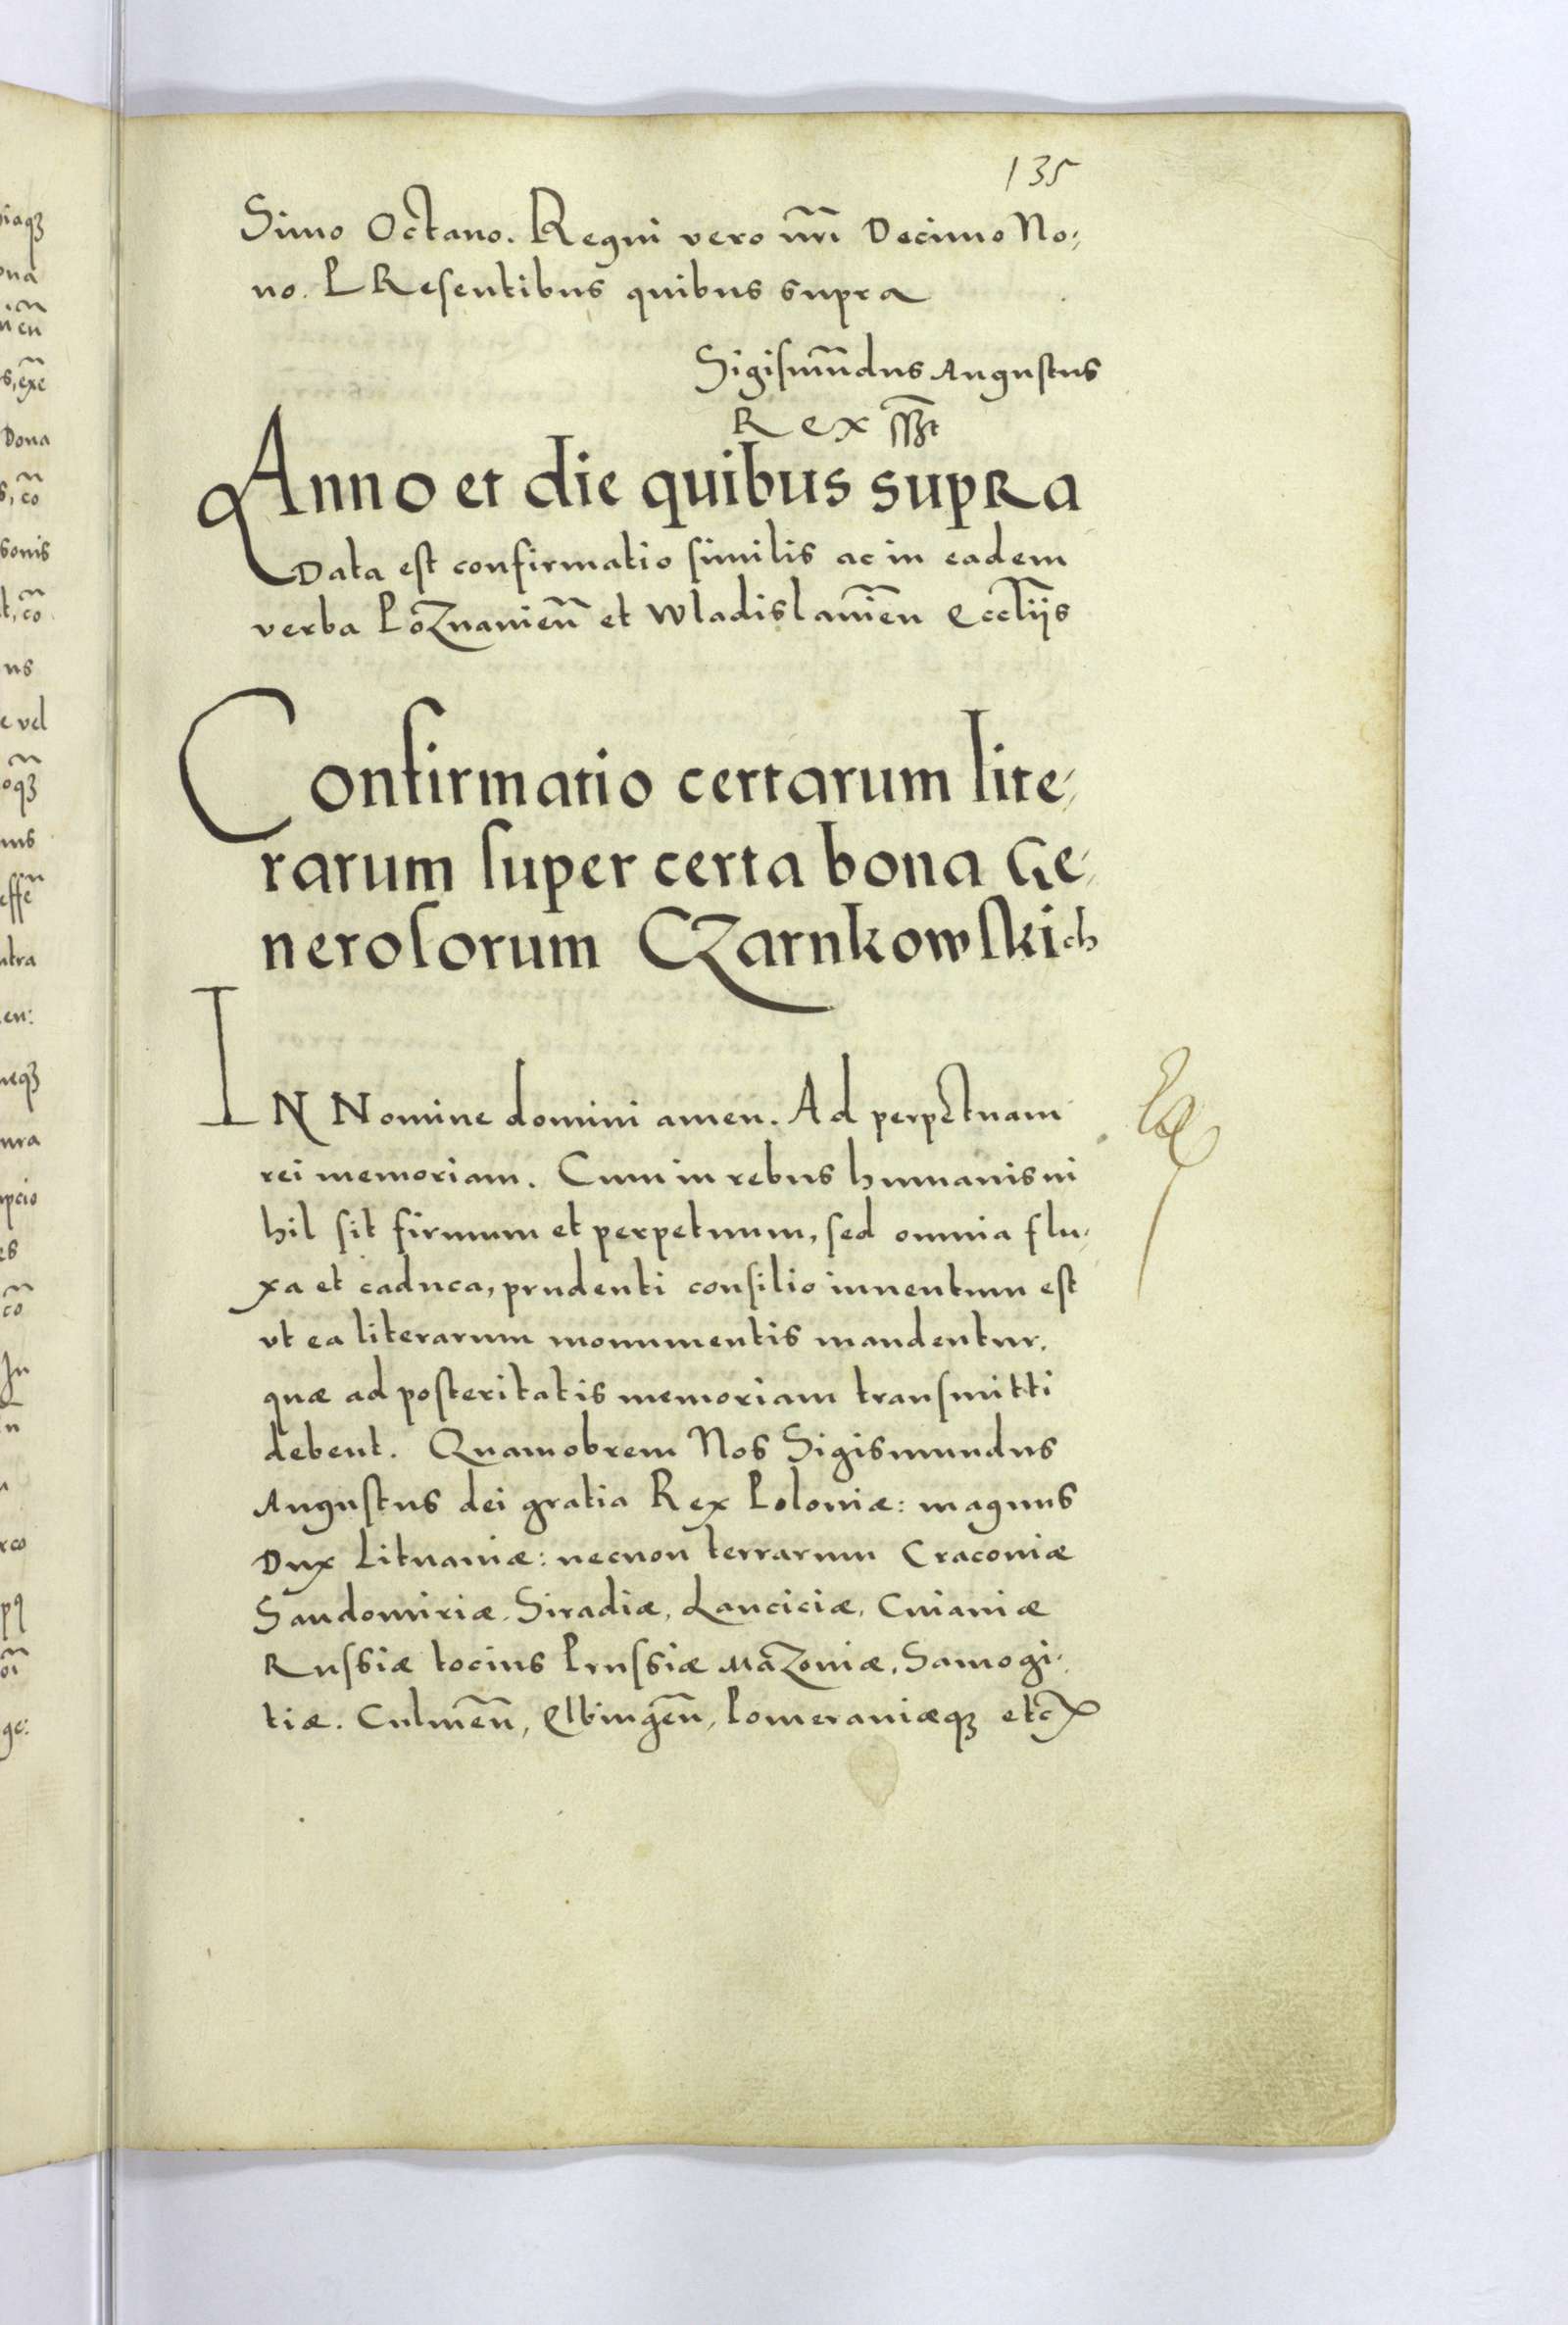 135
Simo Octauo. Regni vero nr̃i Decimo No-
no. PResentibus quibus supra
Sigismũdus Augustus
Rex
Anno et die quibus supRa
Data est confirmatio similis ac in eadem
verba Poznanień et Wladislauień Eccl̃iis
Confirmatio certarum lite-
rarum super certa bona Ge-
nerosorum Czarnkowskich
IN Nomine domini amen. Ad perpetuam
rei memoriam. Cum in rebus humanis ni
hil sit firmum et perpetuum, sed omnia flu-
xa et caduca, prudenti consilio inuentum est
vt ea literarum monumentis mandentur.
quæ ad posteritatis memoriam transmitti
debent. Quamobrem Nos Sigismundus
Augustus dei gratia Rex Poloniæ: magnus
Dux Lituaniæ: necnon terrarum Cracoviæ
Sandomiriæ, Siradiæ, Lanciciæ, Cuiauiæ
Russiæ tocius Prussiæ Mazouiæ, Samogi-
tiæ. Culmeñ, Elbingeñ, Pomeraniæqꝫ etc